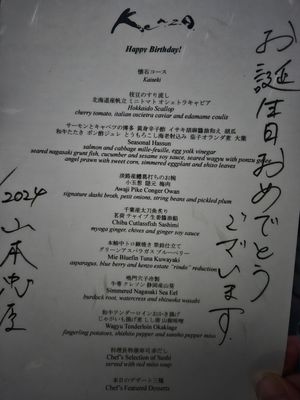 Happy Birthday!
懐石コース
Kaiseki
枝豆のすり流し
北海道産帆立 ミニトマト オシェトラキャビア
Hokkaido Scallop
cherry tomato, italian oscietra caviar and edamame coulis
サーモンとキャベツの博多 黄身辛子酢
Seasonal Hassun
salmon and cabbage mille-feuille, egg yolk vinegar
seared nagasaki grunt fish, cucumber and sesame soy sauce, seared wagyu with ponzu
angel prawn with sweet corn, simmered eggplant and shiso leaves
淡路産鱧
小玉葱 隠元 梅肉
Awaji Pike Conger Owan
signature dashi broth, petit onion, string beans and pickled plum
千葉産太刀魚炙り
茗荷 チャイブ 生姜醤油
Chiba Cutlassfish Sashimi
myoga ginger, chives and ginger soy sauce
グリーンアスパラガス ブルーベリー
Mie Bluefin Tuna Kuwayaki
asparagus, blue berry and kenzo estate "rindo" reduction
鳴門穴子
Simmered Nagasaki Sea Eel
burdock root, watercress and shizuoka wasabi
Wagyu Tenderloin Okakiage
fingerling potatoes, shishito pepper and sansho pepper miso
Chef's Selection of Sushi
served with red miso soup
本日のデザート三種
Chef's Featured Desserts
お誕生日おめでとう
ございます
2024
山本